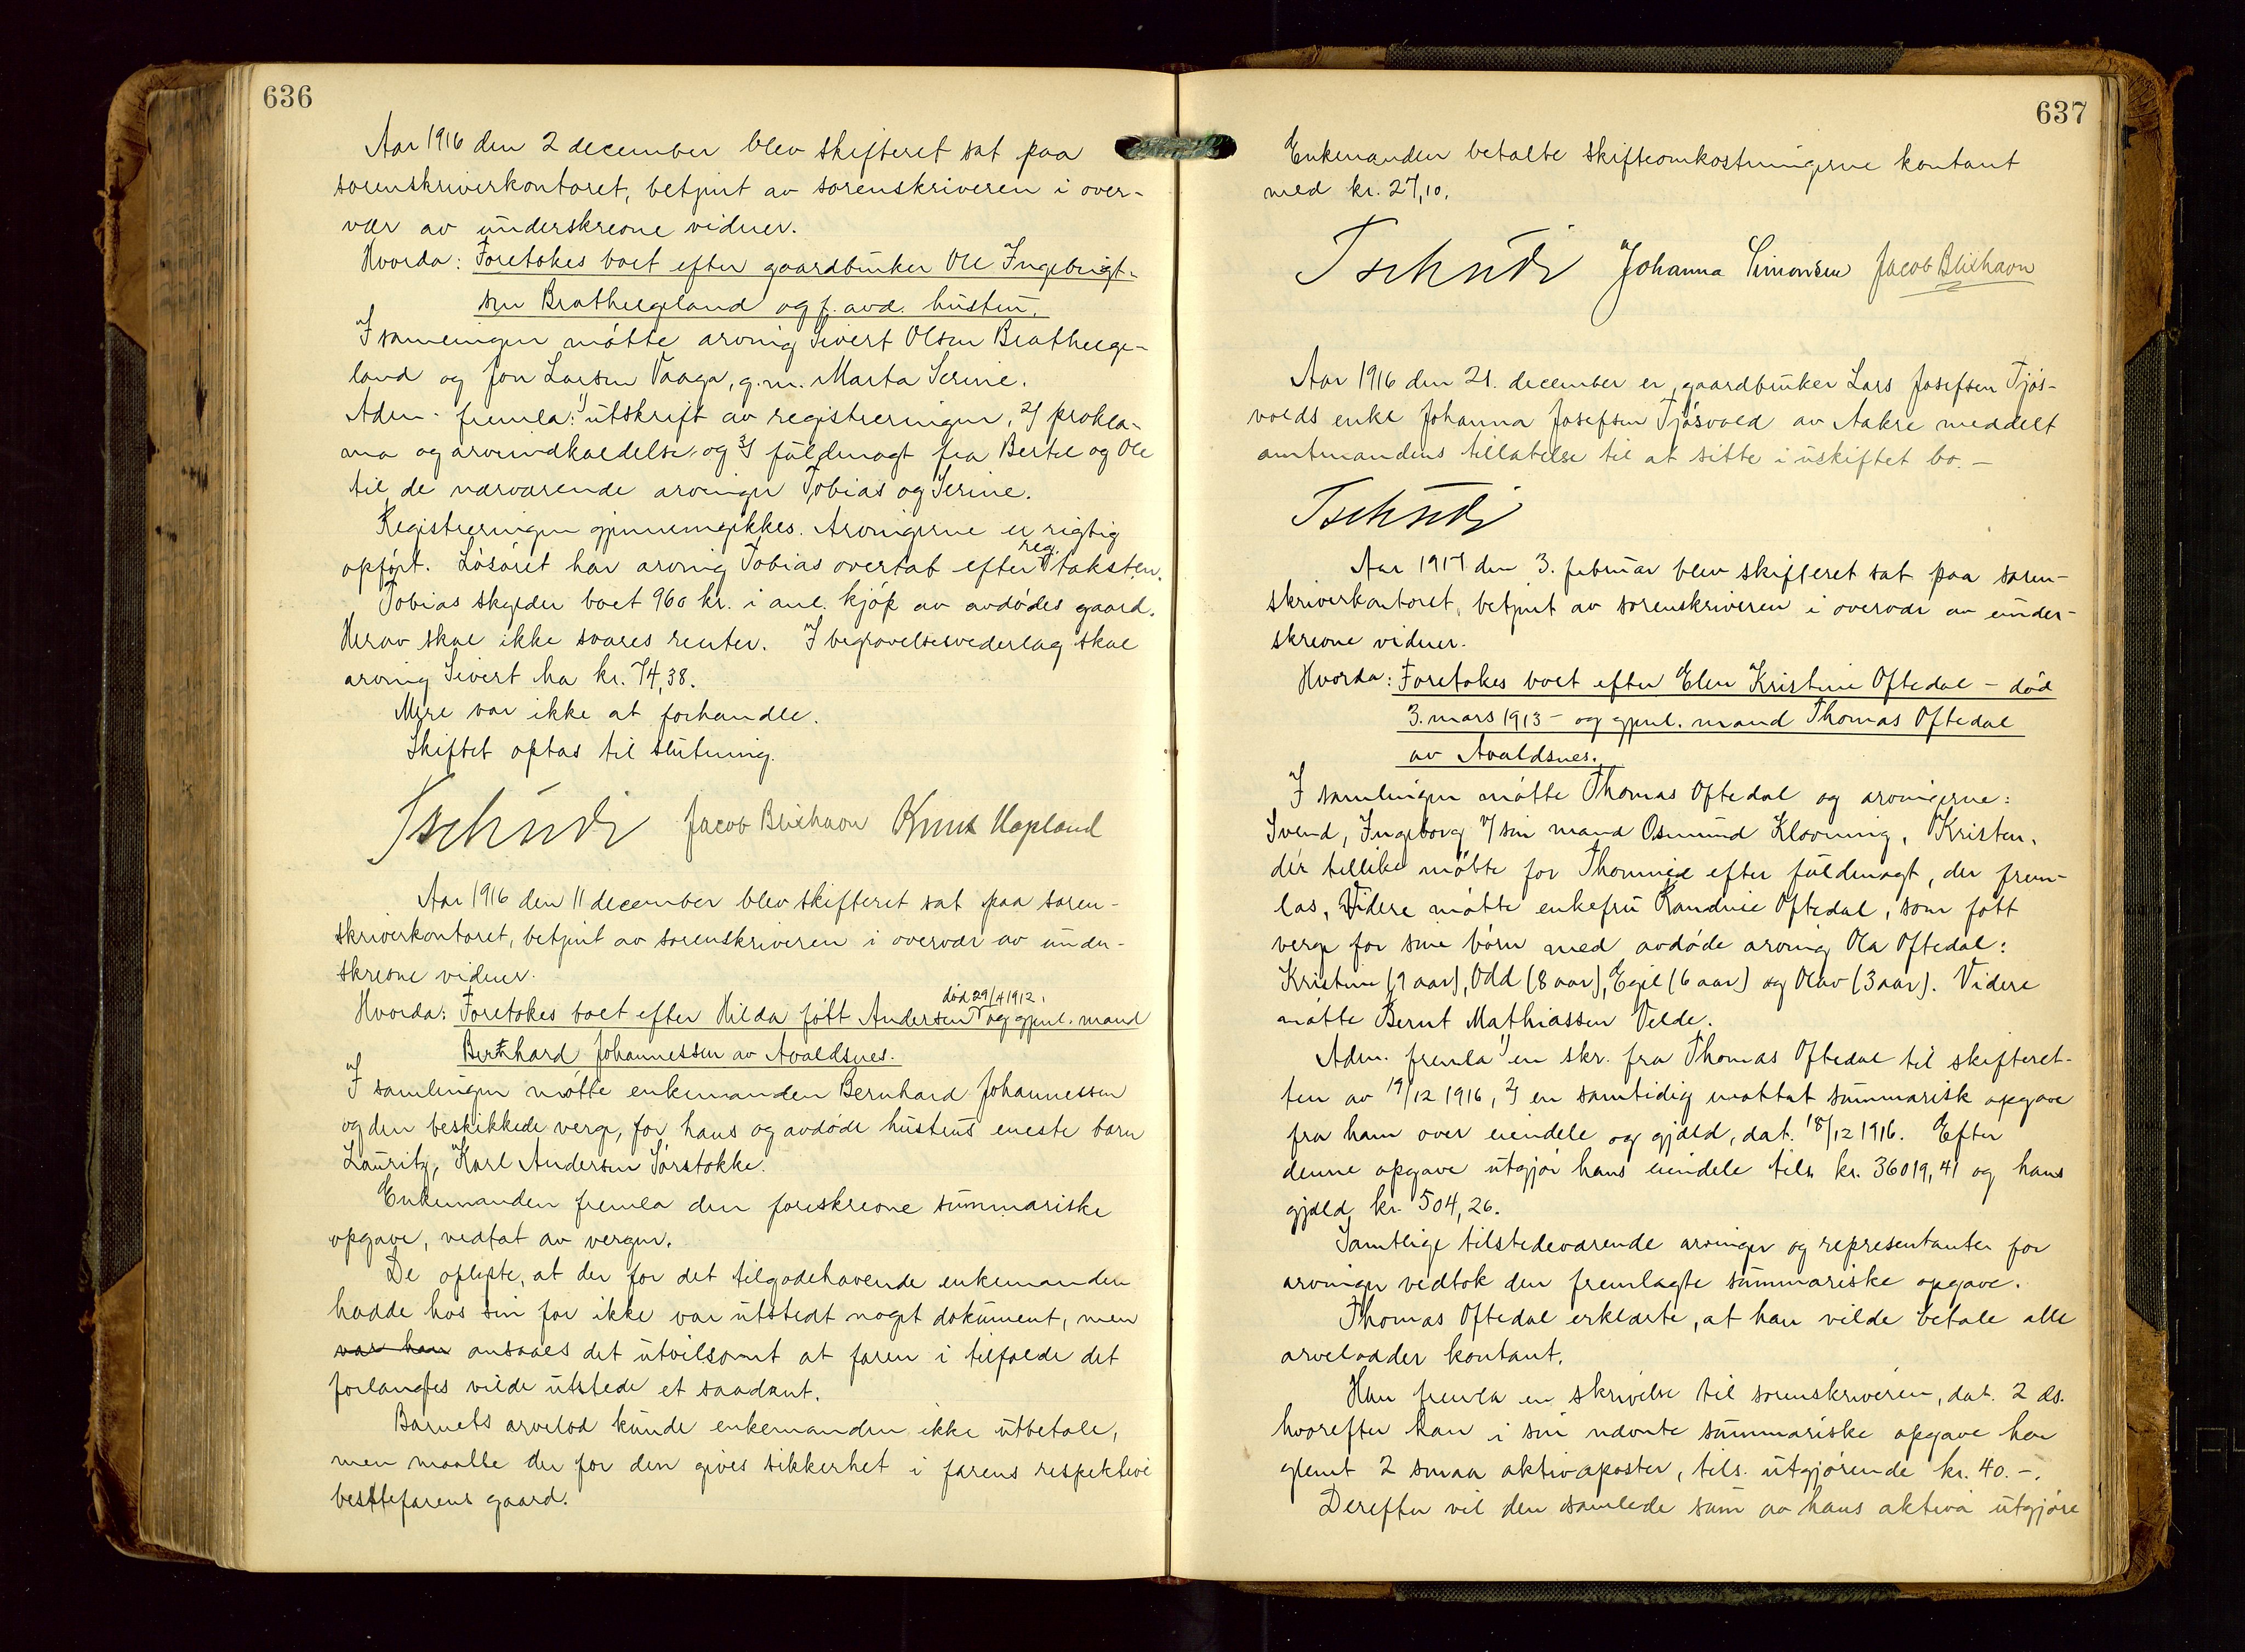 636
Aar 1916 den 2 december blev skifteret sat paa
sorenskriverkontoret, betjent av sorenskriveren i over-
vær av underskrevne vidner.
Hvorda: Foretokes boet efter gaardbruker Ole Ingebrigt-
sen Brathelgeland og f. avd. hustru.
I samlingen møtte arving Sivert Olsen Brathelge-
land og Jon Larsen Vaaga, g.m. Marta Serine.
Adm. fremla: 1) utskrift av registreringen, 2) prokla-
ma og arveindkaldelse, og 3) fuldmagt fra Bertel og Ole
til de nærværende arvinger Tobias og Serine.
Registreringen gjennemgikkes. Arvingerne er rigtig
opført. Løsøret har arving Tobias overtat efter reg. taksten.
Tobias skylder boet 960 kr. i anl. kjøp av avdødes gaard.
Herav skal ikke svares renter. I begravelsesvederlag skal
arving Sivert ha kr. 74,38.
Mere var ikke at forhandle.
Skiftet optas til slutning.
Tschudi Jacob Blikhavn Knut Hapland
Aar 1916 den 11 december blev skifteret sat paa soren-
skriverkontoret, betjent av sorenskriveren i overvær av under-
skrevne vidner.
død 29/4 1912.
Hvorda: Foretokes boet efter Hilda født Andersen og gjenl. mand
Bernhard Johannessen av Avaldsnes.
I samlingen møtte enkemanden Bernhard Johannessen
og den beskikkede verge, for hans og avdøde hustrus eneste barn
Lauritz, Karl Andersen Sørstokke.
Enkemanden fremla den foreskrevne summariske
opgave, vedtat av vergen.
De oplyste, at der for det tilgodehavende enkemanden
hadde hos sin far ikke var utstedt noget dokument, men
var han ansaaes det utvilsomt at faren i tilfælde det
forlangtes vilde utstede et saadant.
Barnets arvelod kunde enkemanden ikke utbetale,
men maatte der for den gives sikkerhet i farens respektive
bestefarens gaard.
637
Enkemanden betalte skifteomkostningerne kontant
med kr. 27,10.
Tschudi Johanna Simonsen Jacob Blikhavn
Aar 1916 den 21. december er gaardbruker Lars Josefsen Tjøs-
volds enke Johanna Josefsen Tjøsvold av Aakre meddelt
amtmandens tillatelse til at sitte i uskiftet bo. -
Tschudi
Aar 1917 den 3. februar blev skifteret sat paa soren-
skriverkontoret, betjent av sorenskriveren i overvær av under-
skrevne vidner.
Hvorda: Foretokes boet efter Elen Kristine Oftedal - død
3. mars 1913 - og gjenl. mand Thomas Oftedal
av Avaldsnes.
I samlingen møtte Thomas Oftedal og arvingerne:
Svend, Ingeborg v/ sin mand Osmund Klovning, Kristen,
der tellike møtte for Thomine efter fuldmagt, der frem-
las, Videre møtte enkefru Randine Oftedal, som født
verge for sine børn med avdøde arving Ola Oftedal:
Kristine (9 aar), Odd (8 aar), Egil (6 aar) og Olav (3 aar). Videre
møtte Bernt Mathiassen Velde.
Adm. fremla 1) en skr. fra Thomas Oftedal til skifteret-
ten av 19/12 1916, 2) en samtidig mottat summarisk opgave
fra ham over eiendele og gjæld, dat. 18/12 1916. Efter
denne opgave utgjør hans eiendele tils. kr. 36019,41 og hans
gjæld kr. 504,26.
Samtlige tilstedeværende arvinger og representanter for
arvinger vedtok den fremlagte summariske opgave.
Thomas Oftedal erklærte, at han vilde betale alle
arvelodder kontant.
Han fremla en skrivelse til sorenskriveren, dat. 2 ds.
hvorefter han i sin nævnte summariske opgave har
glemt 2 smaa aktivaposter, tils. utgjørende kr. 40.-.
Derefter vil den samlede sum av hans aktiva utgjøre